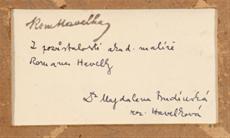 Rom Havelka
Z pozůstalosti akad. malíře
Romana Havelky
Dr Magdalena Budínská
roz. Havelková